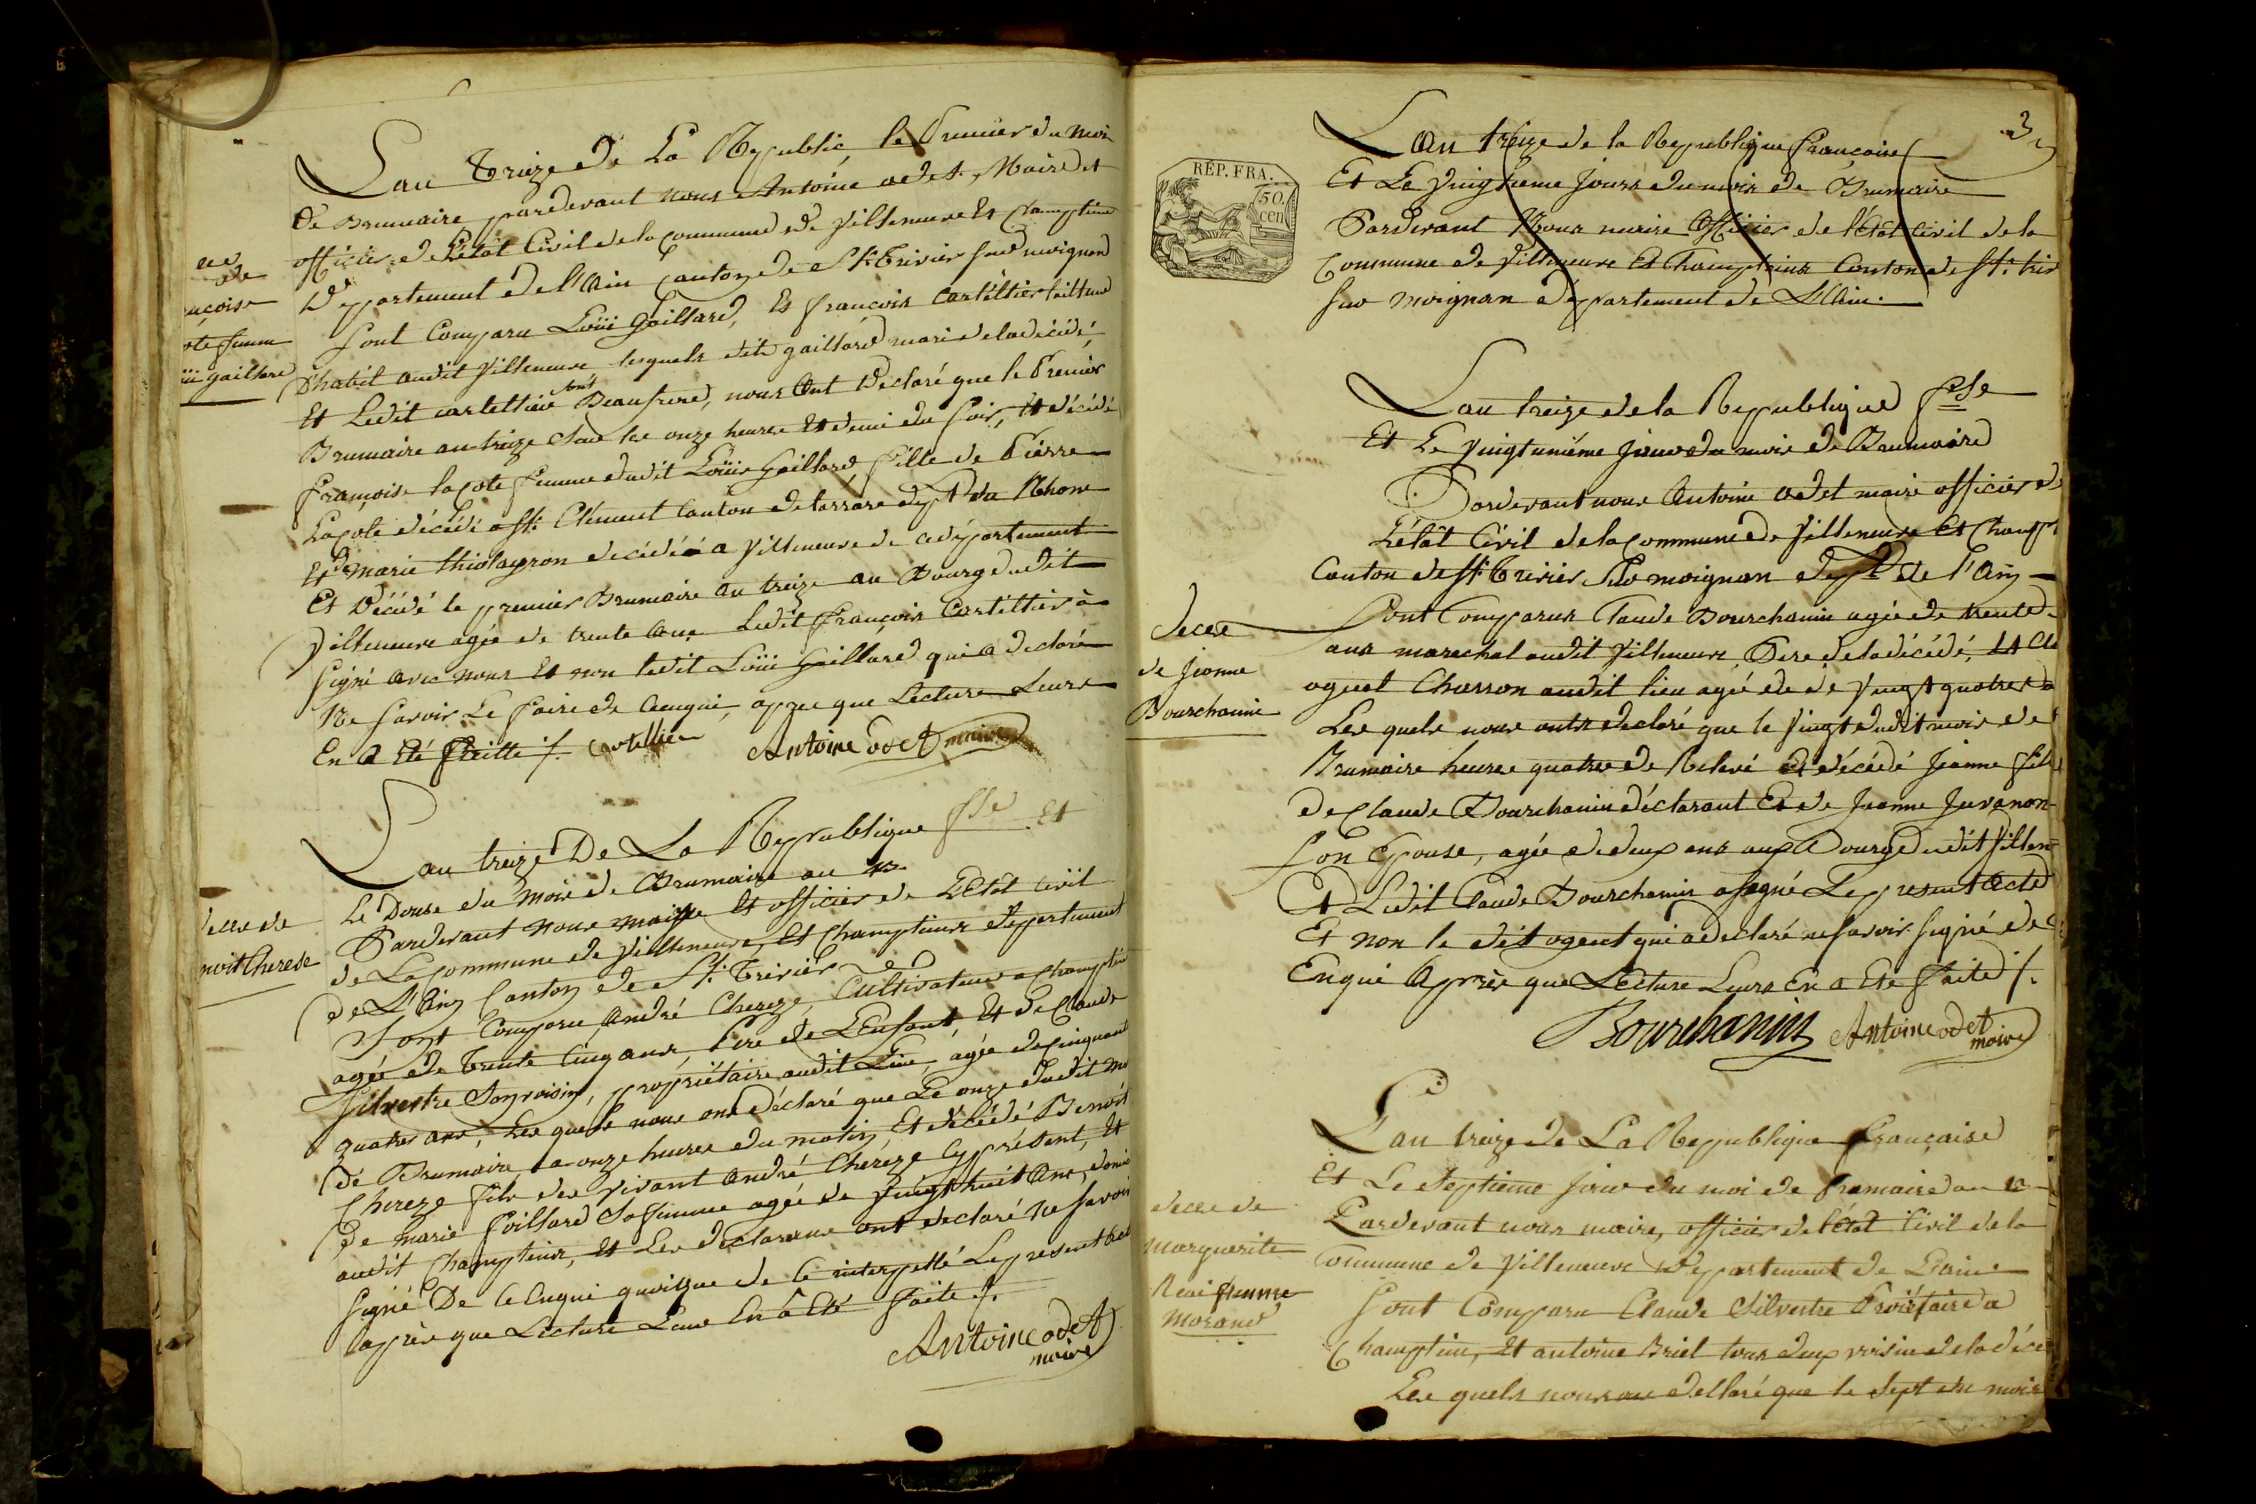 L'an treize De La Republic, le Premier du mois
De Brumaire pardevant nous Antoine odet, Maire et
officier de L'état Civil de la commune de Villeneuve Et Champtein
Département de l'Ain Canton de St. Trivier sur moignand
sont Comparu Loüi gaillard, Es françois Cartéltier
D'habit audit Villeneuve, lesquels dit gaillard mari de la décédé,
Et Ledit cartellier sont Beaufrere, nous Ont Déclaré que le Premier
Brumaire an treize sur les onze heures Et demi du soir, Et décédé
françoise lacote femme dudit Loüis gaillard, fille de Pierre
Lacote décédé a St. Clément Canton de tarrare dept du Rhone
Et marie thiolayron décédéé a Villeneuve de ce département
Et Décédé le premier Brumaire an treize au Bourg dudit
Villeneuve agée de trente ans Ledit françois Cartéltier à
signé avec nous Et non ledit Loüi gaillard qui a déclaré
Ne savoir Le faire de Cenqui, apres que Lecture Leurs
En a Eté faitte ⁒. Cotellier Antoine odet maire
ne
de
ançoise
ote femme
üi gaillard
L'an treize De La Republique fse Et
Le Douse du mois de Brumaire an 13
Pardevant nous maire Et officier de L'Etat Civil
de La Commune de Villeneuve, Et Champteins département
de L'Ain Canton de St. Trivier
Sont Comparu André Chereze, Cultivateur a Champtein
agée de trente Cinq ans, Pere de L'Enfant, Et de Claude
Silvestre Son voisin, propriétaire audit Lieu, agée de cinquant
quatre ans, Les quels nous ons déclaré que Le onze dudit mo
de Brumaire, a onze heures du matin, Et décédé Benoit
Chereze fils des vivant André Chereze Cy présent, Et
De marie foillard Sa femme agée de Vingt huit Ans, domi
audit Champteins, Et Les déclarans ont déclaré Ne savoir
signé De Ce Enqui quoique de Ce interpellé Le present
après que Lecture Leur En a Eté faite ⁒.
Antoine odet
maire
decee de
noit Cherese
3
RÉP. FRA.
50.
cen
L'an treize de la Republique françoise
Et Le vingtieme Jours du mois de Brumaire
Pardevant Nous maire Officier de l'Etat Civil de la
Commune de Villeneuve Et Champteins Canton de St. triv
sur moignan département de L'Ain.
L'an treize de la Republique fse
Et Le vingtunième jour du mois de Brumaire
Pardevant nous Antoine odet maire officier de
L'état Civil de la commune de Villeneuve Et Champt
Canton de St. Trivier sur moignan dept de l'Ain
Sont Comparus Claude Bourchanin agée de trente
ans marechal audit Villeneuve, Pere de la décédé, Et Cla
ogent Charron audit lieu agée de Vingt quatres a
Les quels nous onts déclaré que le Vingt dudit mois de
Brumaire heures quatre de Relevé Et décédé Jeanne fille
de Claude Bourchanin déclarant Et de Jeanne Juvanon
son Epouse, agée de deux ans aux Bourg dudit Villen
Et Ledit Claude Bourchanin a segné Le present Acte
Et non le dit ogent qui a declaré ne savoir signé de C
Enqui Après que Lecture Leurs En a Eté faite ⁒.
Bourchanin Antoine odet
maire
decee
de Jeanne
Bourchanin
L'an treize de La Republique française
Et Le Septieme jour du moi de frimaire an 13
Pardevant nous maire, officier de l'état Civil de la
Commune de Villeneuve Département de L'ain
Sont Comparu Claude Silvestre Proiétaire a
Champtein, Et antoine Briel tous deux voisin de la déce
Les quels nous on dellaré que le Sept du mois
decee de
marguerite
femme
morand